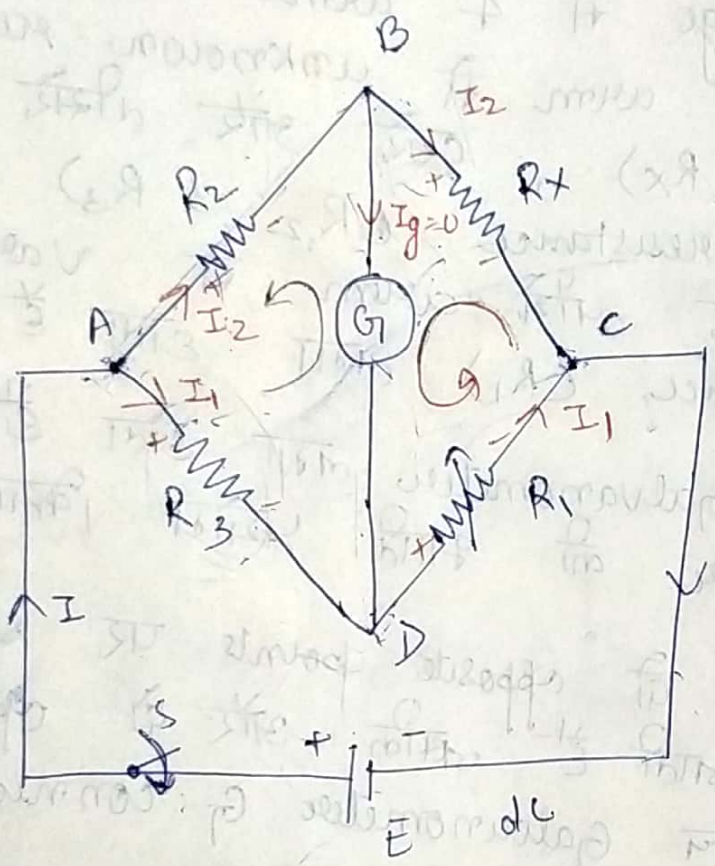 B
I2
R2
Rx
Ig=0
A
I2
G
C
I1
I1
R3
R1
I
D
S
+
-
E
dc